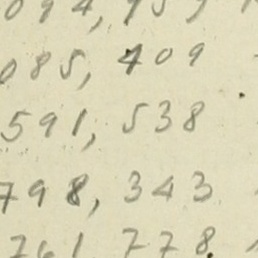 085, 409
591, 538
798, 343
761 778